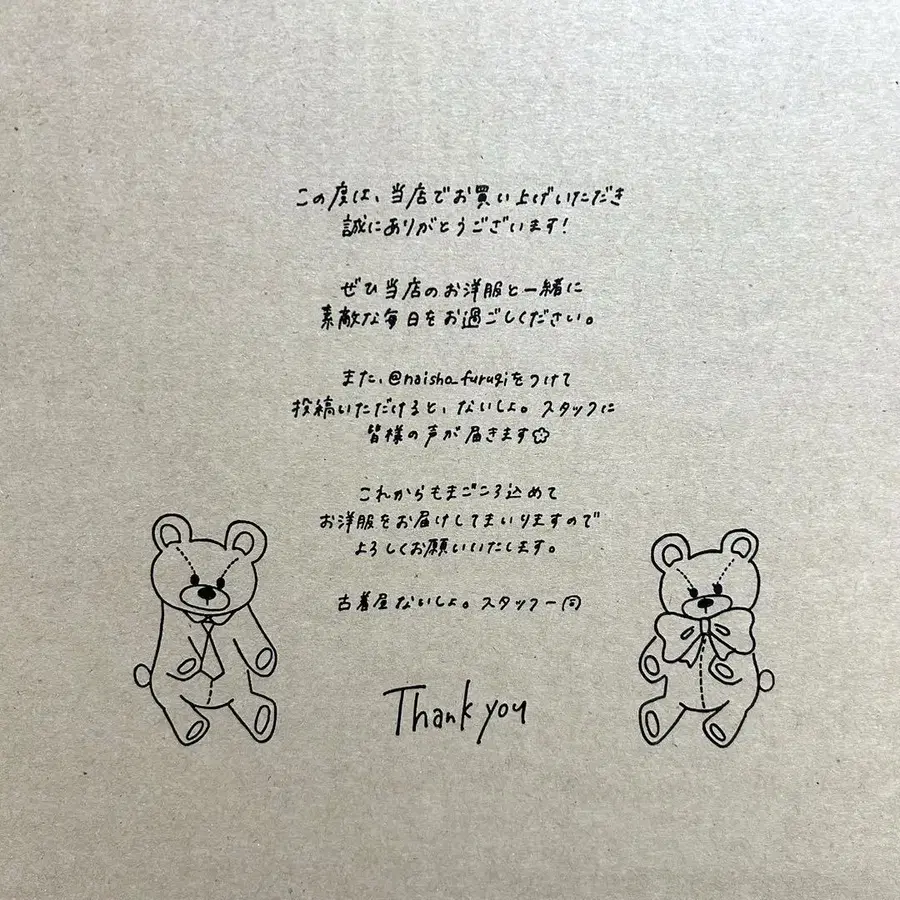 この度は、当店でお買い上げいただき
誠にありがとうございます!
ぜひ当店のお洋服と一緒に
素敵な毎日をお過ごしください。
また、@naisho_furugiをつけて
投稿いただけると、ないしょ。スタッフに
皆様の声が届きます✿
これからもまごころ込めて
お洋服をお届けしてまいりますので
よろしくお願いいたします。
古着屋ないしょ。スタッフ一同
Thank you